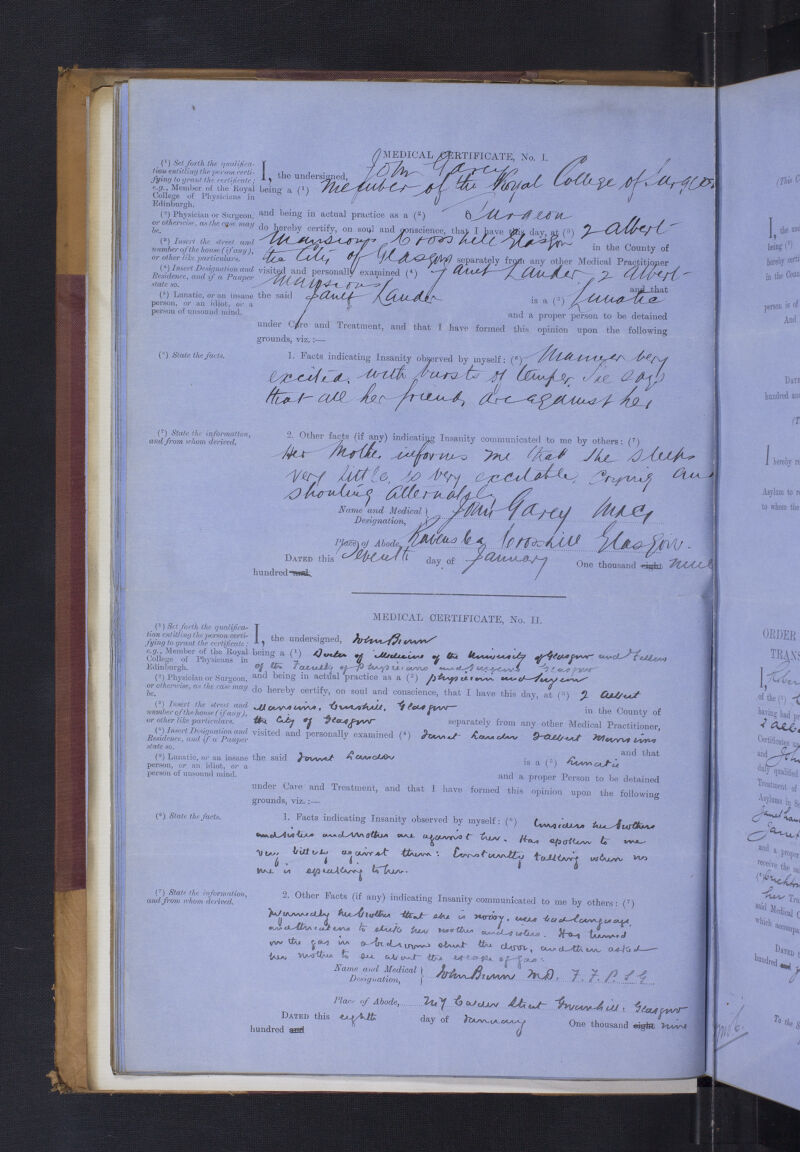 MEDICAL CERTIFICATE, No. I.
(1) Set forth the qualifica-
tion entitling the person certi-
fying to grant the certificate;
e.g., Member of the Royal
College of Physicians in
Edinburgh.
(2) Physician or Surgeon,
or otherwise, as the case may
be.
(3) Insert the street and
number of the house (if any),
or other like particulars.
(4) Insert Designation and
Residence, and if a Pauper
state so.
(5) Lunatic, or an insane
person, or an idiot, or a
person of unsound mind.
I, the undersigned, John Garey
being a (1) Member of the Royal College of Surgeons
and being in actual practice as a (2) Surgeon
do hereby certify, on soul and conscience, that I have this day, at (3) 2 Albert
Mansions Crosshill Glasgow in the County of
the City of Glasgow separately from any other Medical Practitioner
visited and personally examined (4) Janet Lauder, 2 Albert
Mansions and that
the said Janet Lauder is a (5) Lunatic
and a proper person to be detained
under Care and Treatment, and that I have formed this opinion upon the following
grounds, viz.:—
(6) State the facts.
1. Facts indicating Insanity observed by myself: (6) Manner very
excited, with bursts of temper, She says
that all her friends are against her
(7) State the information,
and from whom derived.
2. Other facts (if any) indicating Insanity communicated to me by others: (7)
Her Mother informs me that she sleeps
very little, is very excitable. Crying and
shouting alternately
Name and Medical
Designation, John Garey
Place of Abode, Crosshill Glasgow.
DATED this Seventh day of January One thousand eight nine
hundred and
MEDICAL CERTIFICATE, No. II.
(1) Set forth the qualifica-
tion entitling the person certi-
fying to grant the certificate;
e.g., Member of the Royal
College of Physicians in
Edinburgh.
(2) Physician or Surgeon,
or otherwise, as the case may
be.
(3) Insert the street and
number of the house (if any),
or other like particulars.
(4) Insert Designation and
Residence, and if a Pauper
state so.
(5) Lunatic, or an insane
person, or an idiot, or a
person of unsound mind.
I, the undersigned, John
being a (1) Doctor of Medicine of the University of Glasgow and Fellow
of the Faculty of Physicians and Surgeons Glasgow
and being in actual practice as a (2) physician and surgeon
do hereby certify, on soul and conscience, that I have this day, at (3) 2 Albert
Mansions, Crosshill, Glasgow in the County of
the City of Glasgow separately from any other Medical Practitioner,
visited and personally examined (4) Janet Lauder 2 Albert Mansions
and that
the said Janet Lauder is a (5) Lunatic
and a proper Person to be detained
under Care and Treatment, and that I have formed this opinion upon the following
grounds, viz.:—
(6) State the facts.
1. Facts indicating Insanity observed by myself: (6) Considers her brothers
and sisters and mother are against her. Has spoken to me
very bitterly against them: Constantly talking when no
one is speaking to her.
(7) State the information,
and from whom derived.
2. Other Facts (if any) indicating Insanity communicated to me by others: (7)
Informed by her brother that she is noisy, uses bad language,
and threatens to strike her mother and sisters. Has turned
on the gas in a bedroom shut the door, and then asked
her mother to see about the escape of gas.
Name and Medical
Designation, John M.D. F.F.P.S.G
Place of Abode, Calder Street Govanhill: Glasgow
DATED this eighth day of January One thousand eight nine
hundred and
(This C
I, the und
being (1)
hereby certi
in the Coun
person is of
And
DATE
hundred and
I hereby re
Asylum to re
to whom the
ORDER
TRANS
of the (1)
having had p
2 Alb
Certificates
and John
duly qualified
Treatment of
Asylums in S
Janet Lau
Janet
and a proper
receive the sa
her
said Medical C
which accompa
DATED t
hundred and
To the S